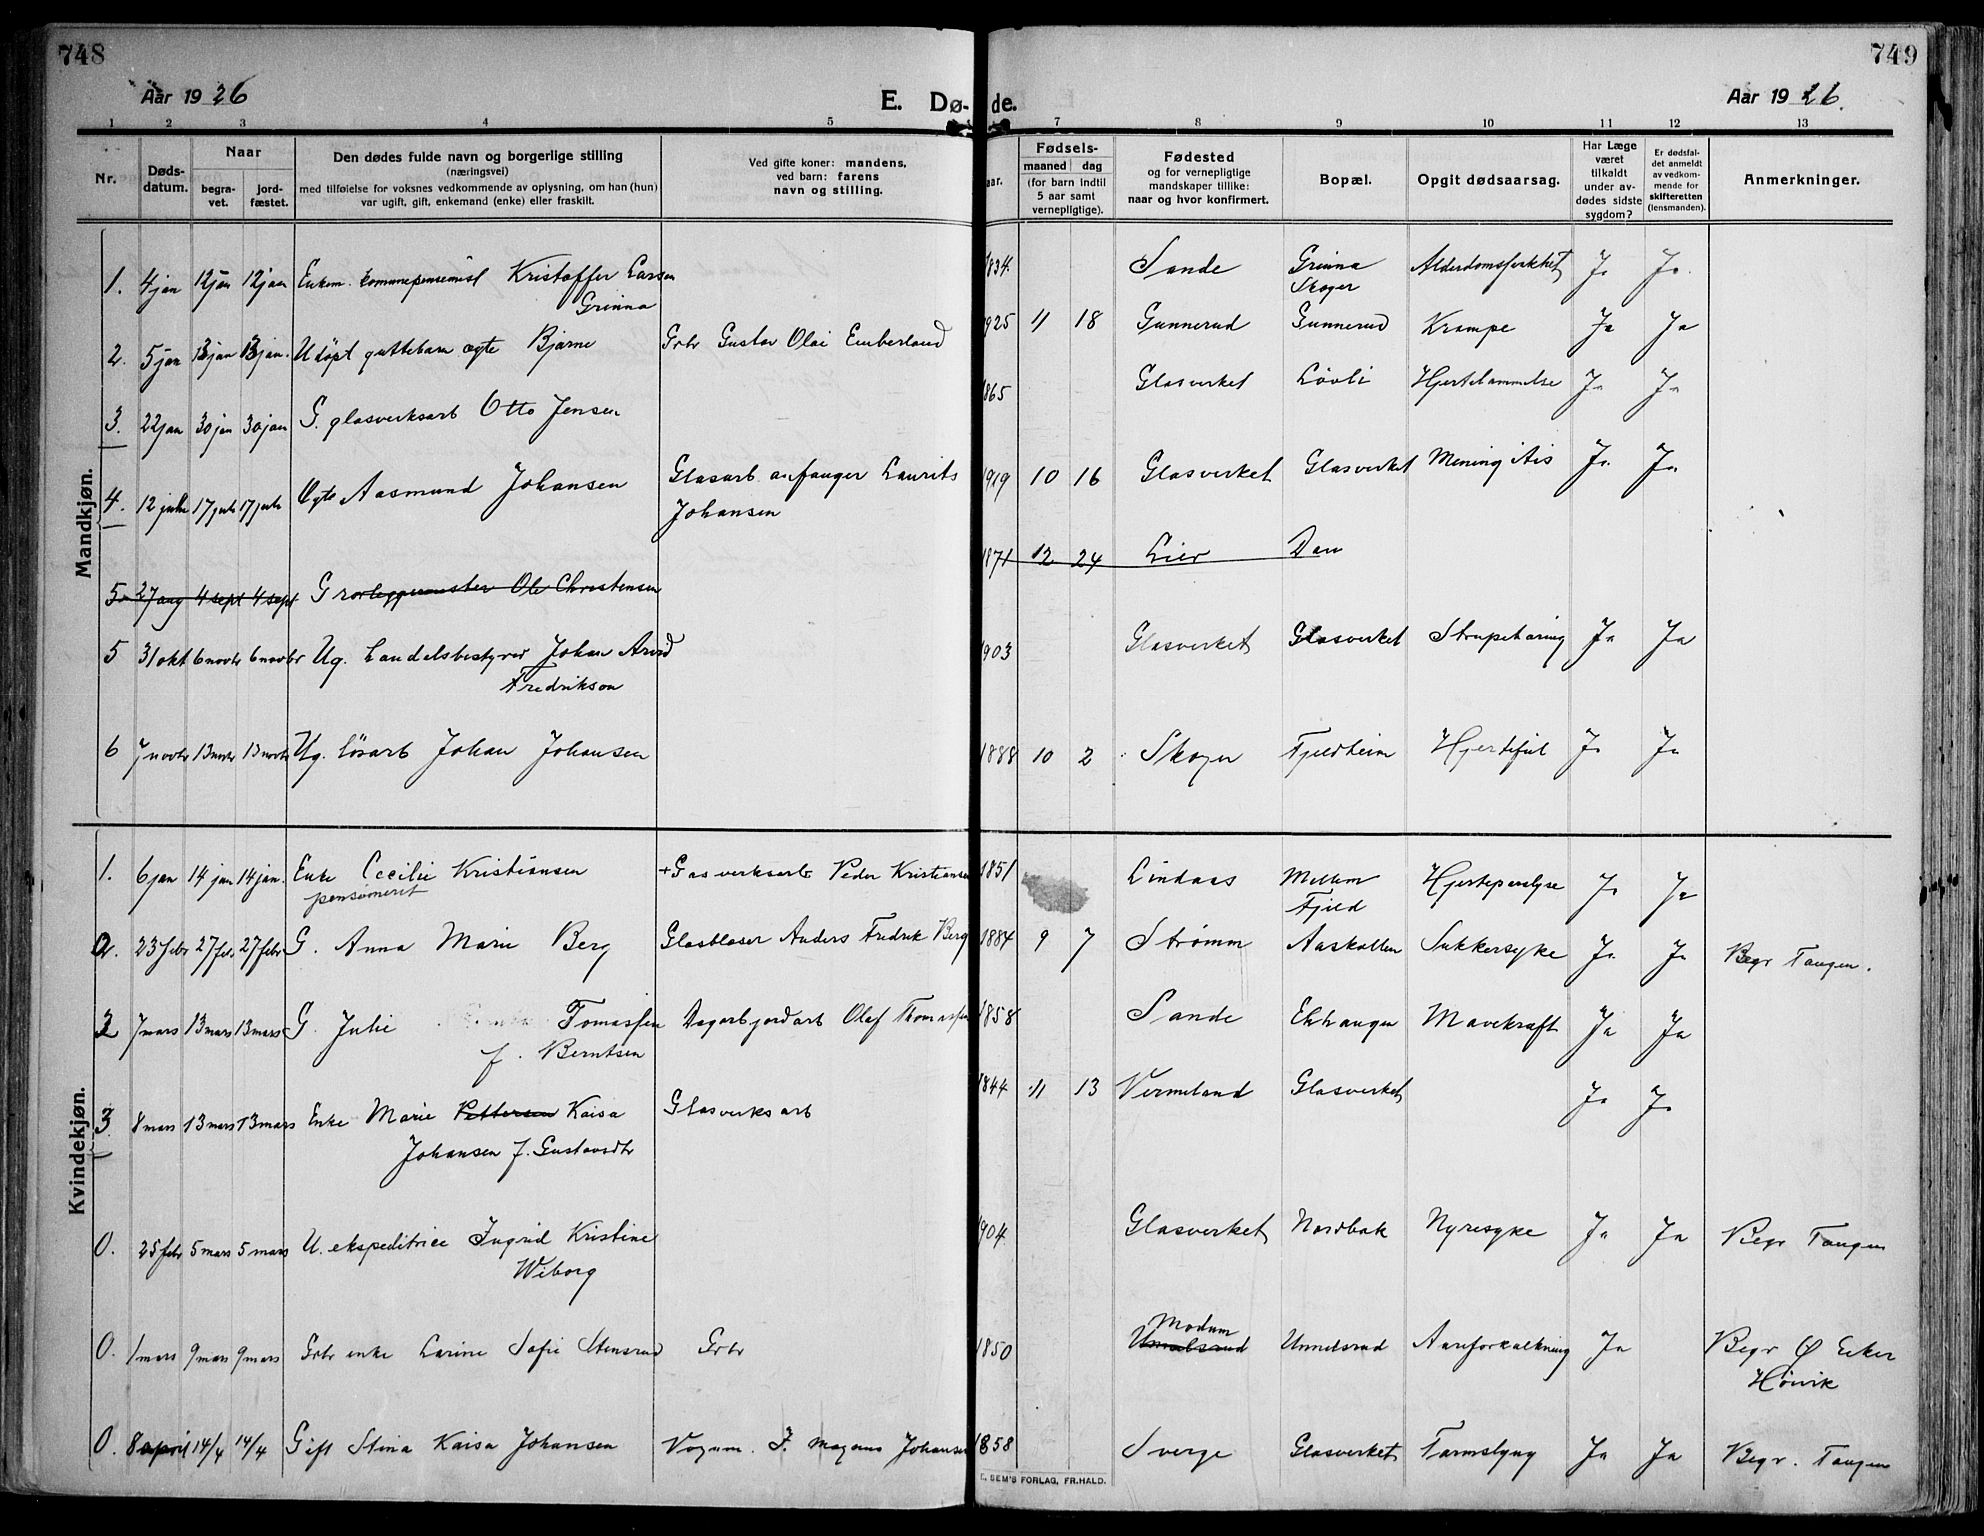 748
749
Aar 1926
E. Dø-
de.
Aar 1926.
1 2 3 4 5 7 8 9 10 11 12 13
Nr.
Døds-
datum.
Naar
begra-
vet.
jord-
fæstet.
Den dødes fulde navn og borgerlige stilling
(næringsvei)
med tilføielse for voksnes vedkommende av oplysning, om han (hun)
var ugift, gift, enkemand (enke) eller fraskilt.
Ved gifte koner: mandens,
ved barn: farens
navn og stilling.
aar.
Fødsels-
maaned dag
(for barn indtil
5 aar samt
vernepligtige).
Fødested
og for vernepligtige
mandskaper tillike:
naar og hvor konfirmert.
Bopæl.
Opgit dødsaarsag.
Har Læge
været
tilkaldt
under av-
dødes sidste
sygdom?
Er dødsfal-
det anmeldt
av vedkom-
mende for
skifteretten
(lensmanden).
Anmerkninger.
Mandkjøn.
1. 4 jan 12 jan 12 jan Enkem. kommunepensernist Kristoffer Larsen 1834. Sande Grinna Alderdomssvakhet Ja Ja.
Grinna Skoger
2. 5 jan 13 jan 13 jan. Udøpt guttebarn ægte Bjarne Grbr Gustav Olai Emberland 1925 11 18 Gunnerud Gunnerud Krampe Ja Ja
3. 22 jan 30 jan 30 jan G. glasverksarb Otto Jensen 1865 Glasverket Løvli Hjertelammelse Ja Ja
4. 12 juli 17 juli 17 juli Ægte Aasmund Johansen Glasarb. anfanger Laurits 1919 10 16 Glasverket Glasverket Mening itis Ja Ja
Johansen
5 27 aug 4 sept 4 sept G rørleggermester Ole Christensen 1871 12 24 Lier Dan
5 31 okt 6 novbr 6 novbr Ug. handelsbestyrer Johan Arvid 1903 Glasverket Glasverket Strupetæring Ja Ja
Fredrikson
6 7 novbr 13 novbr 13 novbr Ug. løsarb Johan Johansen 1888 10 2 Skoger Fjeldheim Hjertefeil Ja Ja
Kvindekjøn.
1. 6 jan 14 jan 14 jan. Enke Cecilie Kristiansen + Gasverksarb Peder Kristiansen 1851 Lindaas Mellem Hjerteparalyse Ja Ja
pensioneret Fjeld
2. 23 febr 27 feb. 27 febr G. Anna Marie Berg Glasblaser Anders Fredrik Berg 1884 9 7 Strømm Aaskollen Sukkersyke Ja Ja Begr Tangen.
2 7 mars 13 mars 13 mars G. Julie Tomassen Dagarb jordarb Olaf Thomassen 1858 Sande Ekhaugen Mavekræft Ja Ja
f. Berntsen
3 8 mars 13 mars 13 mars Enke Marie Pettersen Kaisa Glasverksarb 1844 11 13 Vermeland Glasverket Ja Ja
Johansen f. Gustavsdtr
0. 25 febr 5 mars 5 mars U. ekspeditrice Ingrid Kristine 1904 Glasverket Nordbak Nyresyke Ja Ja Begr Tangen
Wiborg
0. 1 mars 9 mars 9 mars Grbr enke Larine Sofie Stensrud Grbr 1850 Modum Unnelsrud Unnelsrud Aareforkalkning Ja Begr Ø Eiker
Høivik
0. 8 april 14/4 14/4 Gift Stina Kaisa Johansen Vognm. J. Magnus Johansen 1858 Sverge Glasverket Tarmslyng Ja Ja Begr. Tangen
E. SEM'S FORLAG, FR.HALD.